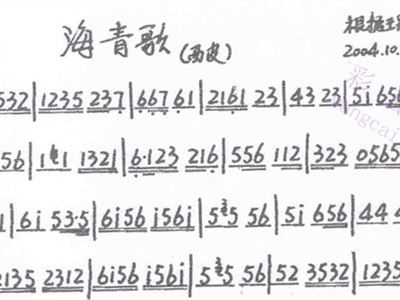 海青歌 (西皮) 根据王
2004.10.
532 | 1235 237 | 667 61 | 2161 23 | 43 23 | 5i 656
56 | 1 1 1321 | 6·123 216 | 556 112 | 323 0565
| 6i 53·5 | 6i56 i56i | 5 5 56 | 5i 656 | 44 4
2135 2312 | 6i56 i56i | 5 5 56 | 52 3532 | 1235